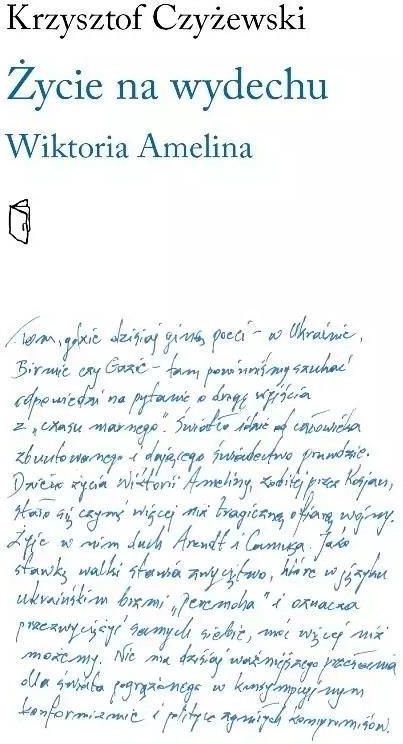 Krzysztof Czyżewski
Życie na wydechu
Wiktoria Amelina
Tam, gdzie dzisiaj giną poeci – w Ukrainie,
Birmie czy Gazie – tam powinniśmy szukać
odpowiedzi na pytanie o drogę wyjścia
z „czasu marnego". Światło idzie od człowieka
zbuntowanego i dającego świadectwo prawdzie.
Dzieło życia Wiktorii Ameliny, zabitej przez Rosjan,
stało się czymś więcej niż tragiczną ofiarą wojny.
Żyje w nim duch Arendt i Camusa. Jako
stawkę walki stawia zwycięstwo, które w języku
ukraińskim brzmi „Peremoha" i oznacza
przezwyciężyć samych siebie, móc więcej niż
możemy. Nie ma dzisiaj ważniejszego przesłania
dla świata pogrążonego w konsumpcyjnym
konformizmie i polityce zgniłych kompromisów.